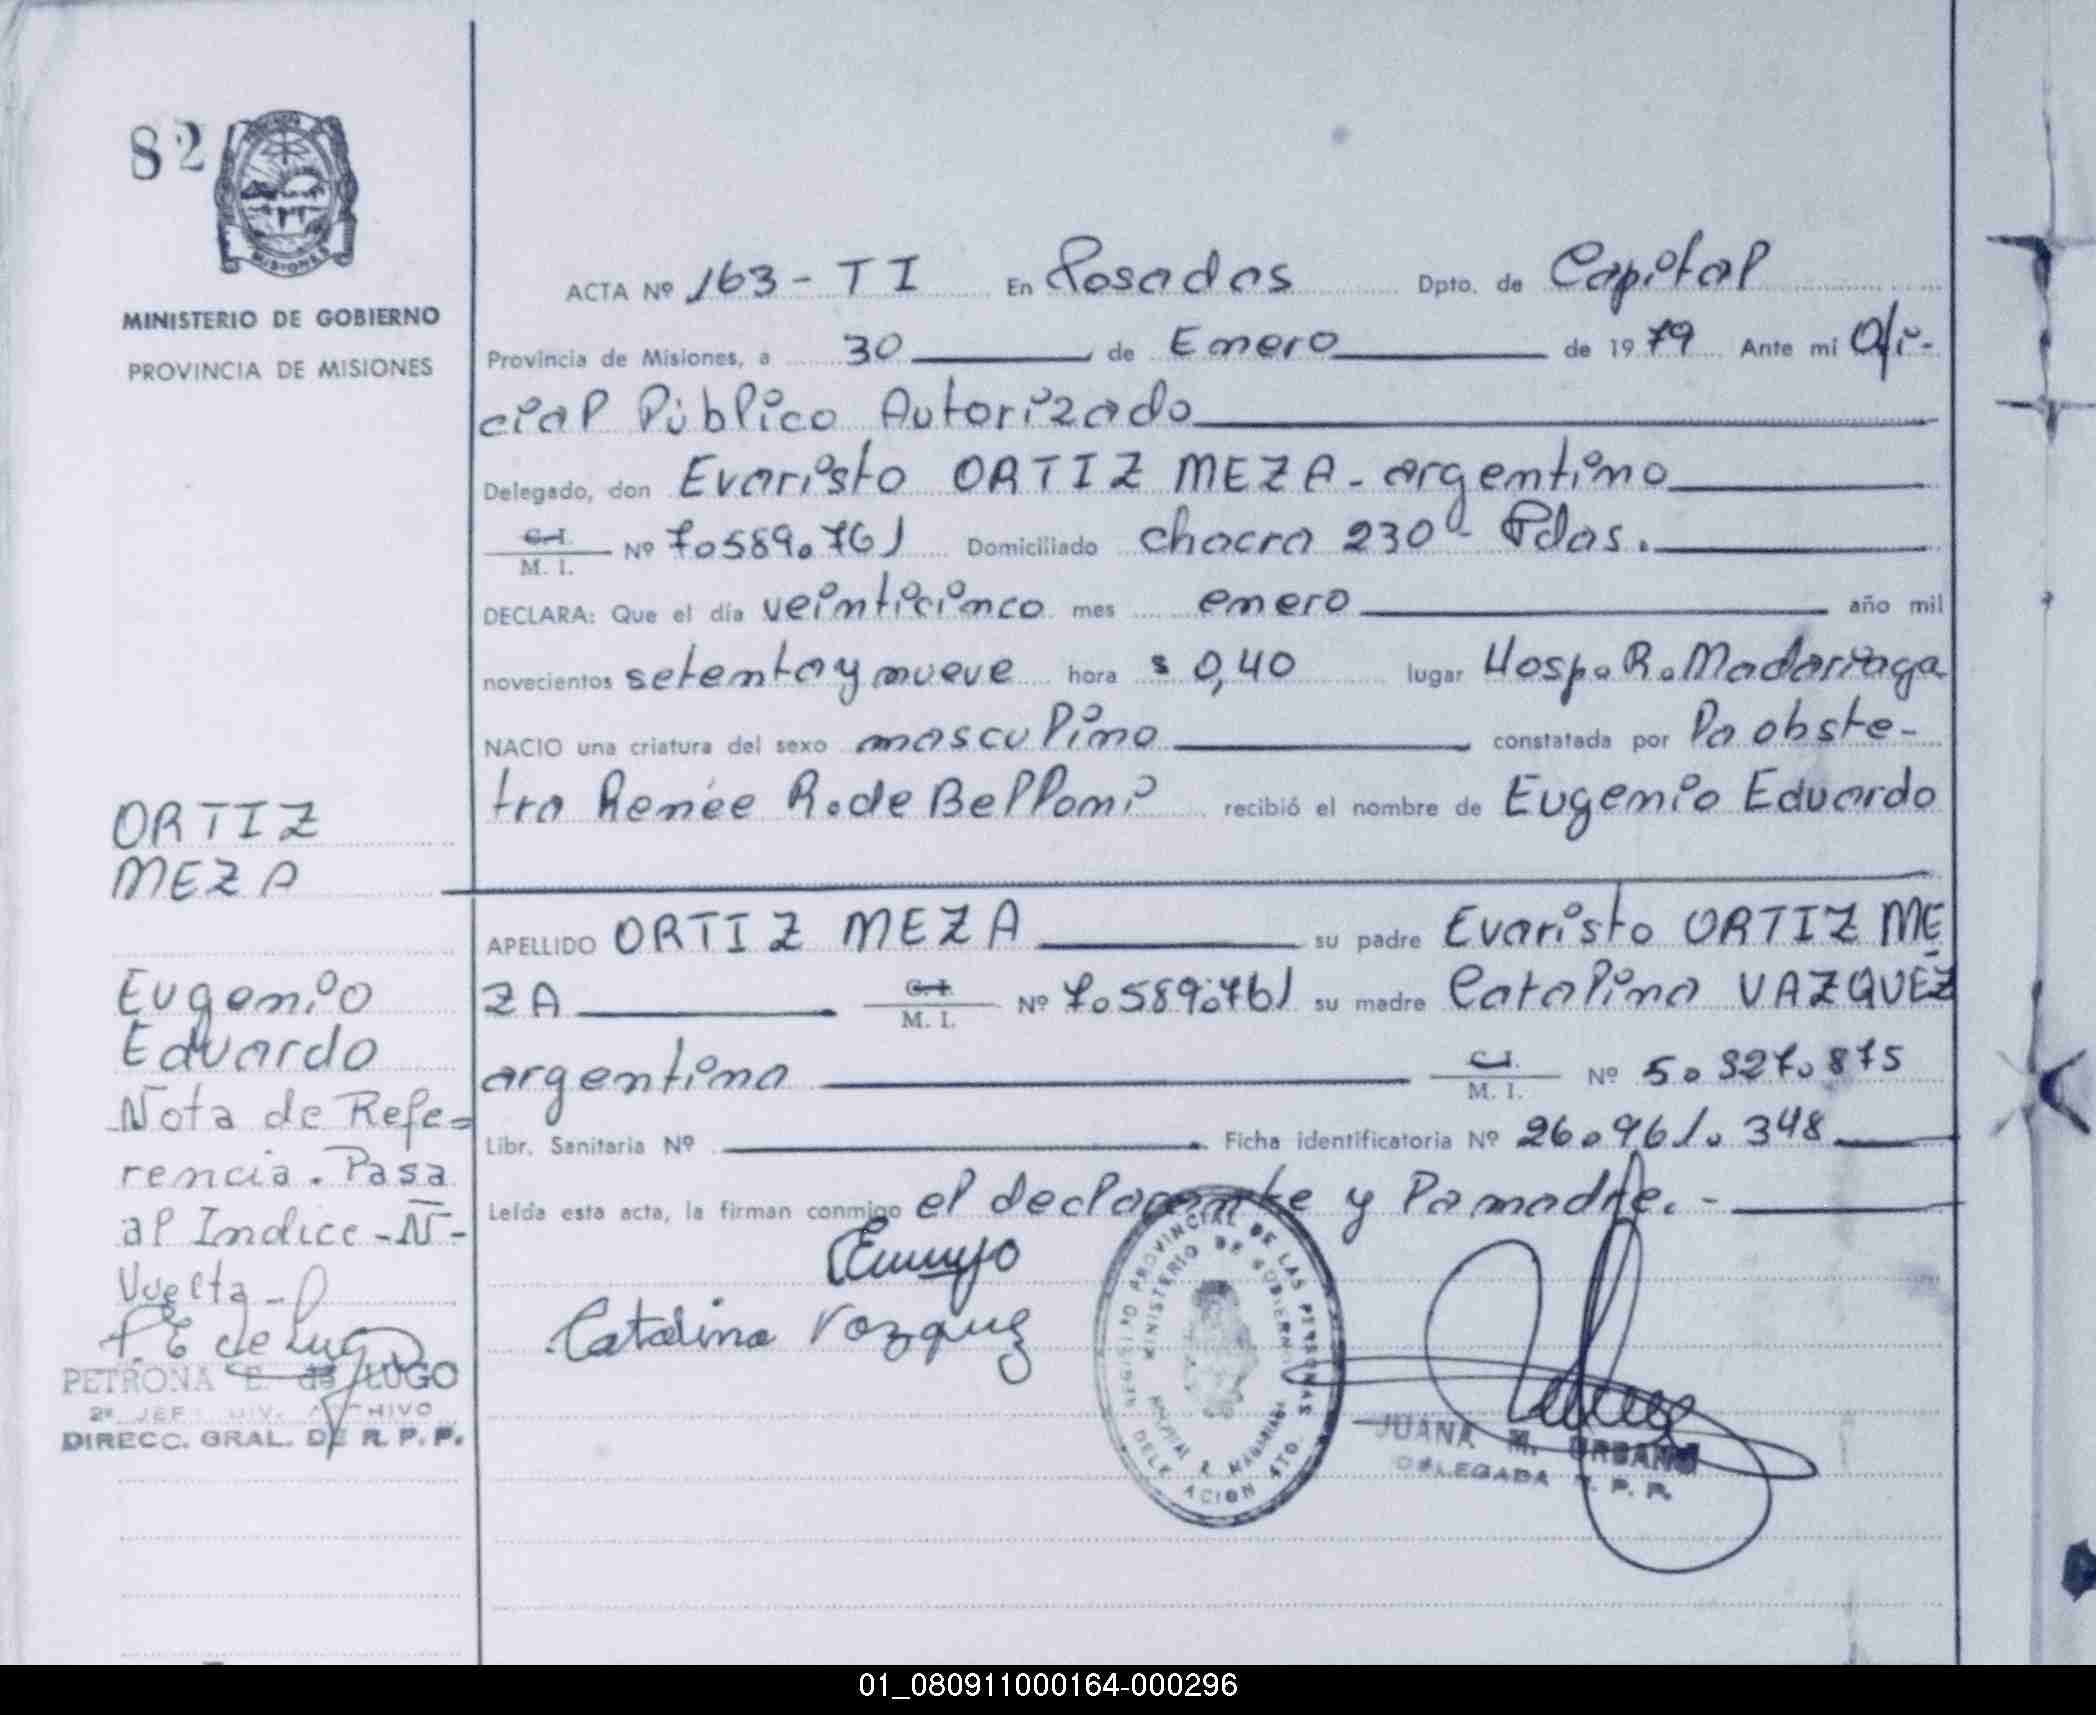 82
MINISTERIO DE GOBIERNO
PROVINCIA DE MISIONES
MISIONES
ACTA Nº 163 - TI En Posadas Dpto. de Capital
Provincia de Misiones, a 30 de Enero de 1979 Ante mi Ofi-
cial Público Autorizado
Delegado, don Evaristo ORTIZ MEZA - argentino
C.I.
M. I. Nº 7.589.761 Domiciliado chacra 230 - Pdas.
DECLARA: Que el día veinticinco mes enero año mil
novecientos setenta y nueve hora s 0,40 lugar Hosp. R. Madariaga
NACIO una criatura del sexo masculino constatada por la obste-
tra Renée R. de Bellomi recibió el nombre de Eugenio Eduardo
APELLIDO ORTIZ MEZA su padre Evaristo ORTIZ ME
ZA C.I. M. I. Nº 7.589.761 su madre Catalina VAZQUEZ
argentina C.I. M. I. Nº 5.327.875
Libr. Sanitaria Nº Ficha identificatoria Nº 26.961.348
Leída esta acta, la firman conmigo el declarante y la madre. -
Catalina Vazquez
ORTIZ
MEZA
Eugenio
Eduardo
Nota de Refe=
rencia. Pasa
al Indice - Ñ -
Vuelta -
P. E de Lugo
PETRONA E. de LUGO
2º JEFE DIV. ARCHIVO
DIRECC. GRAL. DE R. P. P.
REGISTRO PROVINCIAL DE LAS PERSONAS
MINISTERIO DE GOBIERNO
HOSPITAL R. MADARIAGA
DELEGACION 4TO.
JUANA M. URBANO
DELEGADA R. P. P.
01_080911000164-000296